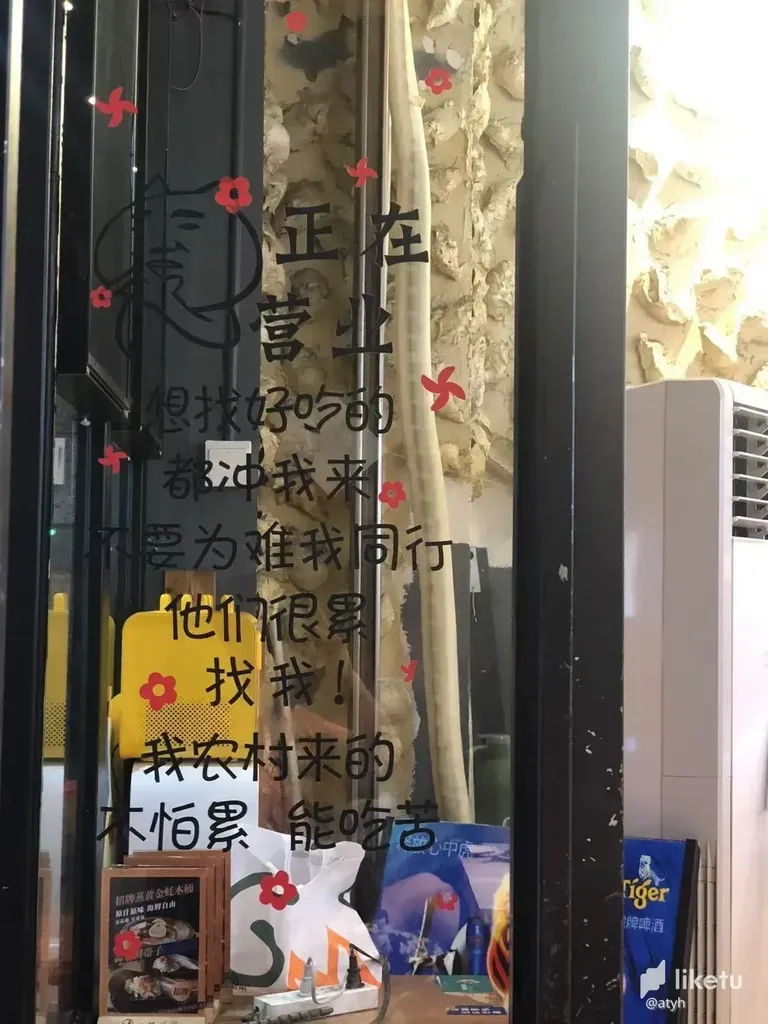 正在
营业
想找好吃的
都冲我来
不要为难我同行
他们很累
找我！
我农村来的
不怕累 能吃苦
招牌蒸黄金蚝木桶
原汁原味 海鲜自由
心中虎
Tiger
牌啤酒
liketu
@atyh